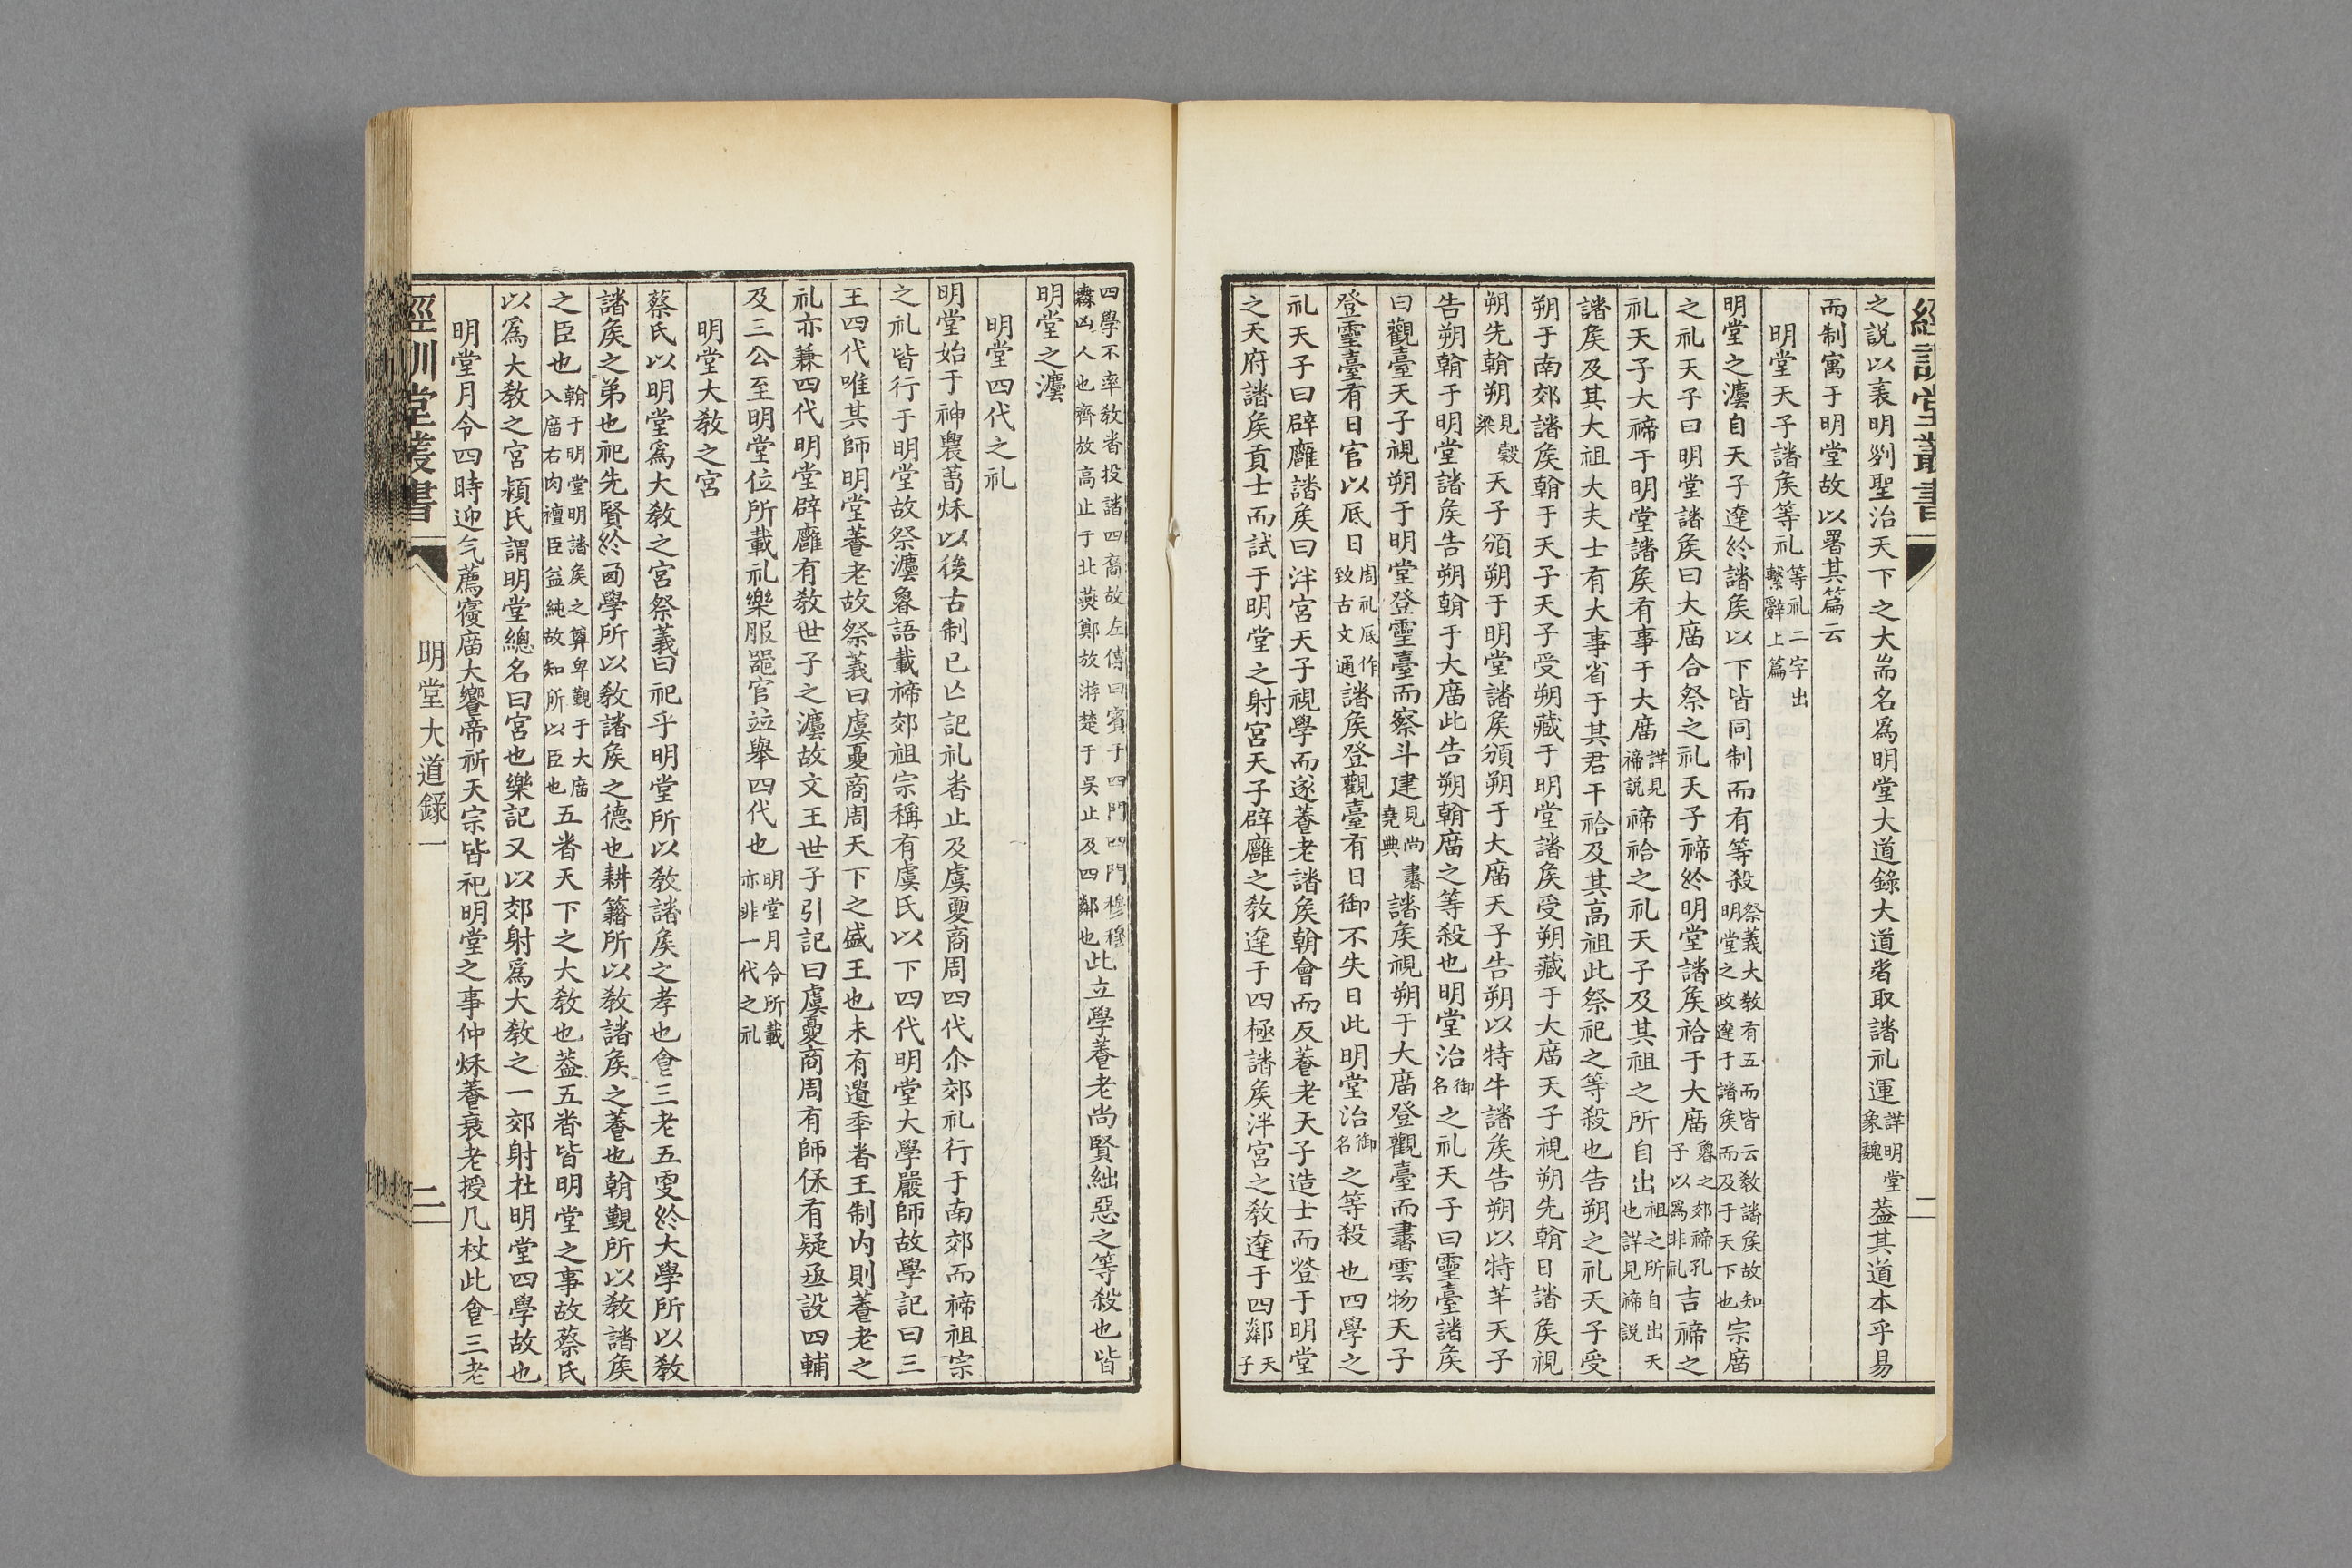 經訓堂叢書
二
之説以表明列聖治天下之大耑名爲明堂大道錄大道者取諸礼運詳明堂象魏葢其道本乎易
而制寓于明堂故以署其篇云
明堂天子諸矦等礼等礼二字出繫辭上篇
明堂之灋自天子達於諸矦以下皆同制而有等殺祭義大敎有五而皆云敎諸矦故知明堂之政達于諸矦而及于天下也宗庿
之礼天子曰明堂諸矦曰大庿合祭之礼天子禘於明堂諸矦祫于大庿魯之郊禘孔子以爲非礼吉禘之
礼天子大禘于明堂諸矦有事于大庿詳見禘説禘祫之礼天子及其祖之所自出祖之所自出天也詳見禘説
諸矦及其大祖大夫士有大事省于其君干祫及其高祖此祭祀之等殺也告朔之礼天子受
朔于南郊諸矦朝于天子天子受朔藏于明堂諸矦受朔藏于大庿天子視朔先朝日諸矦視
朔先朝朔見穀梁天子頒朔于明堂諸矦頒朔于大庿天子告朔以特牛諸矦告朔以特羊天子
告朔朝于明堂諸矦告朔朝于大庿此告朔朝庿之等殺也明堂治御名之礼天子曰靈臺諸矦
曰觀臺天子視朔于明堂登靈臺而察斗建見尚書堯典諸矦視朔于大庿登觀臺而書雲物天子
登靈臺有日官以厎日周礼厎作致古文通諸矦登觀臺有日御不失日此明堂治御名之等殺也四學之
礼天子曰辟廱諸矦曰泮宮天子視學而遂養老諸矦朝會而反養老天子造士而登于明堂
之天府諸矦貢士而試于明堂之射宮天子辟廱之敎達于四極諸矦泮宮之敎達于四鄰天子
四學不率敎者投諸四裔故左傳曰賓于四門四門穆穆無凶人也齊放高止于北燕鄭放游楚于吳止及四鄰也此立學養老尚賢絀惡之等殺也皆
明堂之灋
明堂四代之礼
明堂始于神農黃秌以後古制已亾記礼者止及虞夏商周四代尒郊礼行于南郊而禘祖宗
之礼皆行于明堂故祭灋魯語載禘郊祖宗稱有虞氏以下四代明堂大學嚴師故學記曰三
王四代唯其師明堂養老故祭義曰虞夏商周天下之盛王也未有遺秊者王制内則養老之
礼亦兼四代明堂辟廱有敎世子之灋故文王世子引記曰虞夏商周有師保有疑丞設四輔
及三公至明堂位所載礼樂服器官竝舉四代也明堂月令所載亦非一代之礼
明堂大敎之宮
蔡氏以明堂爲大敎之宮祭義曰祀乎明堂所以敎諸矦之孝也食三老五叟於大學所以敎
諸矦之弟也祀先賢於西學所以敎諸矦之德也耕籍所以敎諸矦之養也朝覲所以敎諸矦
之臣也朝于明堂明諸矦之尊卑覲于大庿入庿右肉襢臣益純故知所以臣也五者天下之大敎也葢五者皆明堂之事故蔡氏
以爲大敎之宮潁氏謂明堂總名曰宮也樂記又以郊射爲大敎之一郊射社明堂四學故也
明堂月令四時迎气薦寢庿大饗帝祈天宗皆祀明堂之事仲秌養衰老授几杖此食三老
經訓堂叢書
明堂大道錄一
二